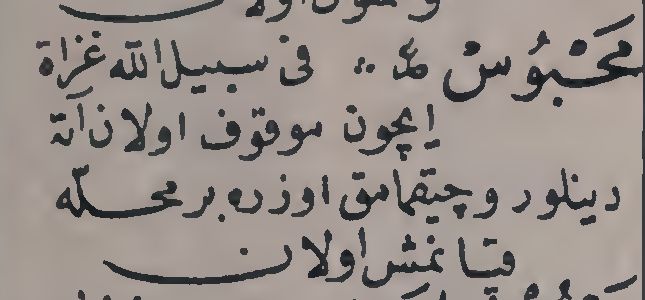 محبوس فی سبيل الله غزاة
ايچون موقوف اولان آته
دينلور و چيقمامق اوزره بر محله
قپانمش اولان